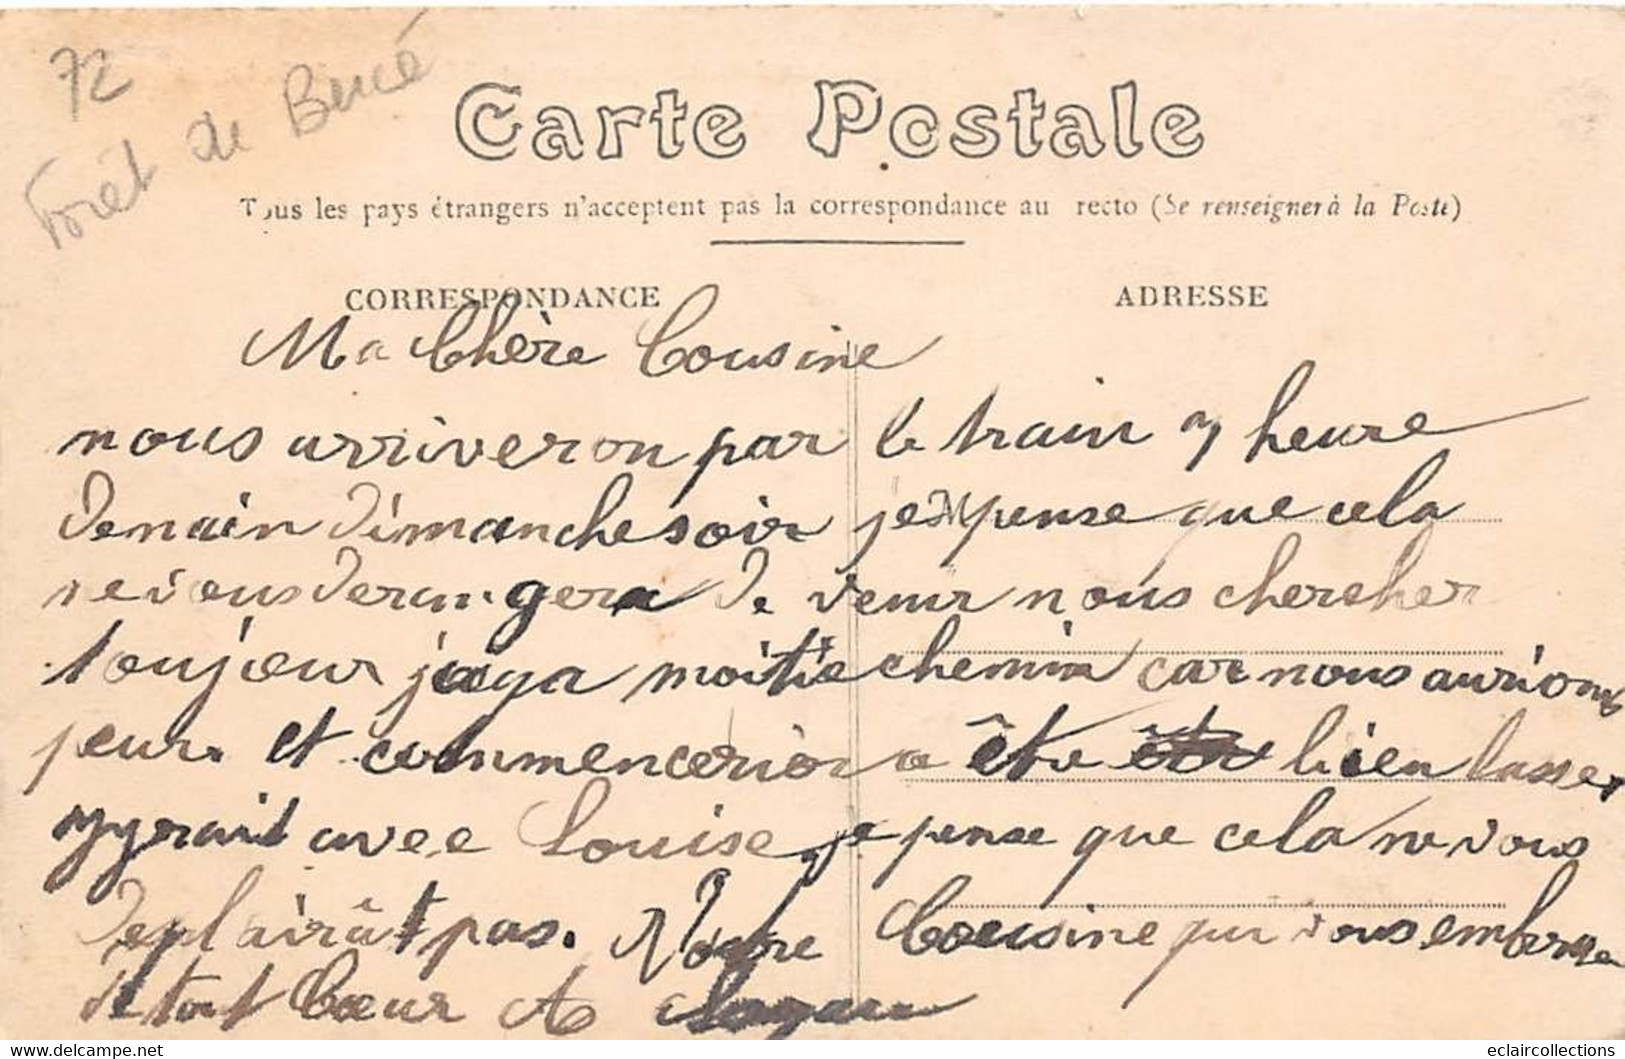 72
Forêt de Bercé
Carte Postale
Tous les pays étrangers n'acceptent pas la correspondance au recto (Se renseigner à la Poste)
CORRESPONDANCE
ADRESSE
Ma Chère Cousine
nous arriveron par le train 7 heure
demain dimanche soir je pense que cela
ne vous derangera de venir nous chercher
toujour moitie chemin car nous aurions
peur. et commencerion a être bien lasser
avec Louise je pense que cela ne vous
deplairât pas. Votre Cousine qui vous embrasse
de tout Cœur A
eclaircollections
https://www.delcampe.net
eclaircollections